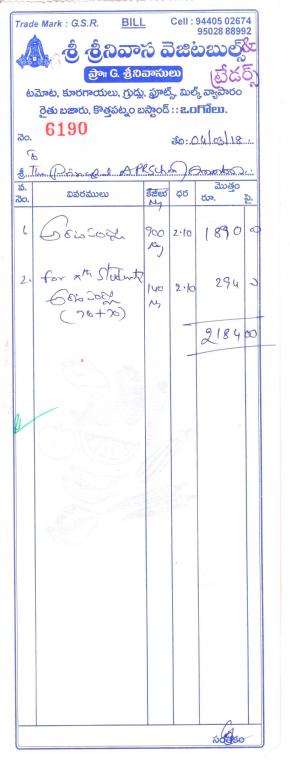 Trade Mark : G.S.R. BILL Cell : 94405 02674
95028 88992
శ్రీ శ్రీనివాస వెజిటబుల్స్ &
ట్రేడర్స్
ప్రొ॥ G. శ్రీనివాసులు
టమోట, కూరగాయలు, గ్రుడ్లు, ఫ్రూట్స్, మిల్క్ వ్యాపారం
రైతు బజారు, కొత్తపట్నం బస్టాండ్ :: ఒంగోలు.
నెం. 6190 తేది: 04/03/18
To
శ్రీ The Principal APRSchool
వ. నెం. వివరములు ధర మొత్తం
రూ. పై.
1. అరటిపండ్లు 900 2.10 1890 0
2. for xth Students 140 2.10 294 0
అరటి పండ్లు
2184 00
సంతకం